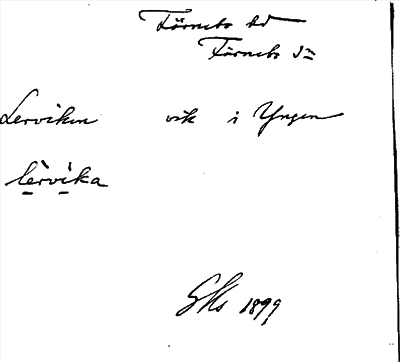 Färnebo hd
Färnebo sn
Lerviken vik i Yngen
lèrvìka
GKs 1899